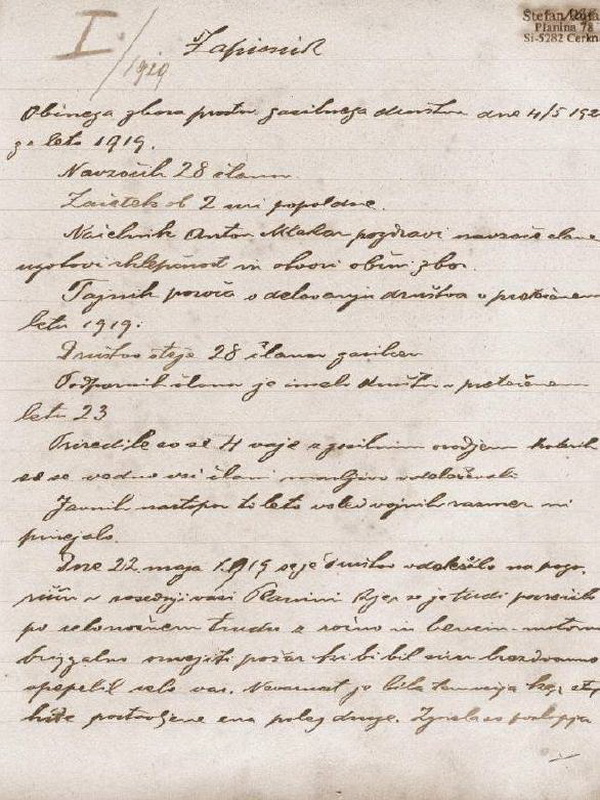 I
/1919
Zapisnik
Štefan
Planina 78
SI-5282 Cerkn
Občnega zbora prostov. gasilnega društva dne 4/5 192
za leto 1919.
Navzočih 28 članov.
Začetek ob 2 uri popoldne.
Načelnik Anton Mlakar pozdravi navzoče člane
ugotovi sklepčnost in otvori občni zbor.
Tajnik poroča o delovanju društva v pretečenem
letu 1919:
Društvo šteje 28 članov gasilcev
Podpornih članov je imelo društvo v pretečenem
letu 23
Priredile so se 4 vaje z gasilnim orodjem katerih
so se vedno vsi člani marljivo udeleževali.
Javnih nastopov to leto vsled vojnih razmer ni
prirejalo.
Dne 22. maja 1919 se je društvo udeležilo na pogo-
rišču v sosednji vasi Planini kjer se je tudi posrečilo
po trudu z ročno in bencin-motorno
brizgalno omejiti požar ki bi bil sicer brezdvomno
upepelil celo vas. Nevarnost je bila
hiše postavljene ena poleg druge. Zgorela so poslopja